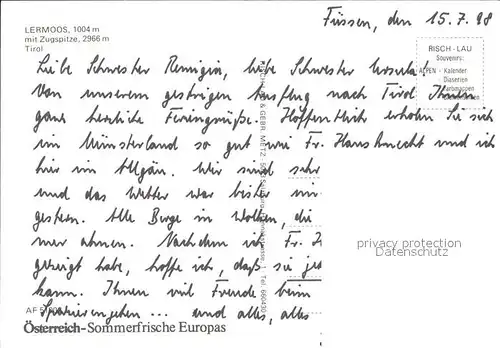 LERMOOS, 1004 m
mit Zugspitze, 2966 m
Tirol
Füssen, den 15.7.98
RISCH-LAU
Souvenirs:
ALPEN - Kalender
Diaserien
Liebe Schwester Remigia, liebe Schwester Ursula!
Von unserem gestrigen Ausflug nach Tirol Ihnen
ganz herzliche Feriengrüße. Hoffentlich erholen Sie sich
im Münsterland so gut wie Fr. Hausknecht und ich
hier im Allgäu. Wir sind sehr
und das Wetter war bisher
gestern. Alle Berge in Wolken, die
nur ahnen. Nachdem ich Fr.
gezeigt habe, hoffe ich, daß sie
kann. Ihnen viel Freude beim
Spazierengehen ... und alles, alles
privacy protection
Datenschutz
AF
Österreich-Sommerfrische Europas